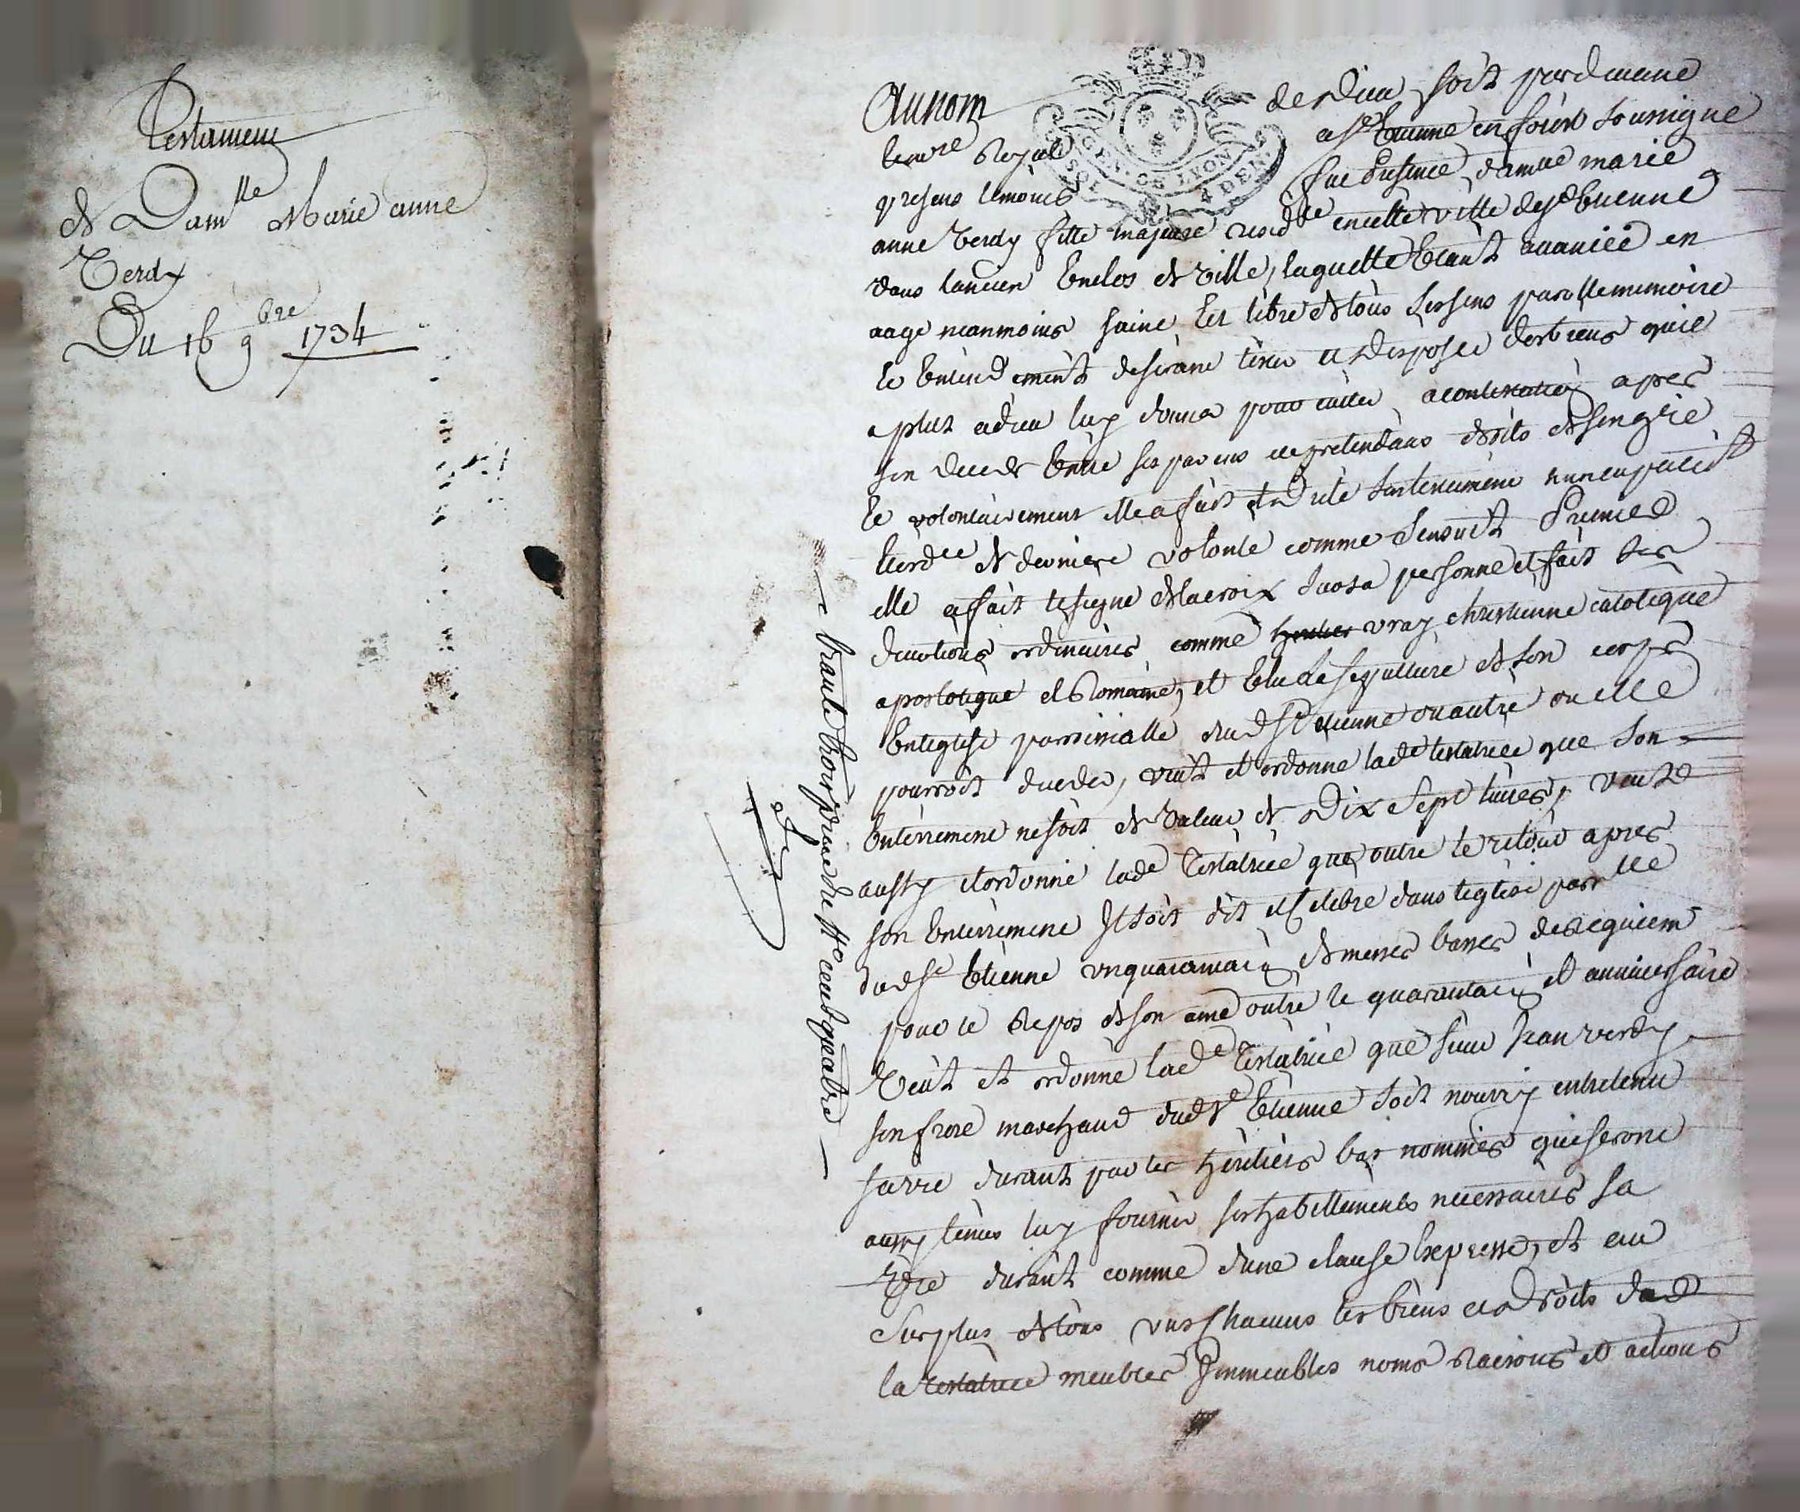 Testament
de Dam^lle Marie anne
Verdy
Du 16 9^bre 1734
Au nom de Dieu soit pardevant
le no^re Royal a S^t Etienne en forest soussigné
presens temoins fut presente dam^lle marie
anne Verdy fille majeure resid^te en cette ville de S^t Etienne
dans lancien Enclos de Ville, laquelle Etant avancée en
aage neanmoins saine Et libre de tous ses sens parolle memoire
Et Entendement desirant tester et disposer des biens quil
a plut a dieu luy donner pour eviter a contestation apres
son deceds Entre ses parens et pretendans droits de son gré
Et volontairement elle a fait et dicté son testament nuncupatif
et derniere volonté comme sensuit Premier
elle a fait le signe de la croix sur sa personne et fait ses
devotions ordinaires comme vray chrestienne catolique
apostolique et Romaine, et Elu de sepulture de son corps
En leglise parroissialle dud S^t etienne ou autre ou elle
pourroit deceder, veut et ordonne lad^e testatrice que son
Enterrement ne soit de valeur de Dix Sept livres, veut
aussy et ordonne lad^e Testatrice que outre le retour apres
son Enterrement Il soit dit et celebré dans leglise parr^lle
dud S^t Etienne un quarantain de messes basses de requiem
pour le Repos de son ame outre le quarantain et anniversaire
Veut et ordonne lad^e Testatrice que sieur Jean verdy
son frere marchand dud S^t Etienne soit nourry entretenu
sa vie durant par les heritiers bas nommés qui seront
aussy tenus luy fournir ses habillements necessaires sa
Vie durant comme dune clause Expresse, et au
Surplus de tous uns chacuns les biens et droits de lad
la testatrice meubles Immeubles noms Raisons et actions